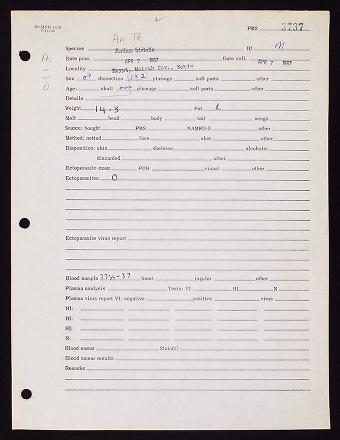 AN TR
PMS 3737
Species Anthus trivialis ID M
Date proc. APR 7 1967 Date coll. APR 7 1967
Locality Egypt,
Sex ♂ dissection plumage soft parts other
Age skull plumage soft parts other
Details
Weight 14.3 Fat
Molt head body tail wings
Source: bought PMS NAMRU-3 other
Method: netted lime shot other
Disposition: skin skeleton alcoholic
discarded other
Ectoparasite exam PDH visual other
Ectoparasites 0
Ectoparasite virus report
Blood sample 3735-37 heart jugular other
Plasma analysis Tests: VI HI N
Plasma virus report VI: negative positive virus
HI:
HI:
HI:
N:
Blood smear Stain(s)
Blood smear results
Remarks